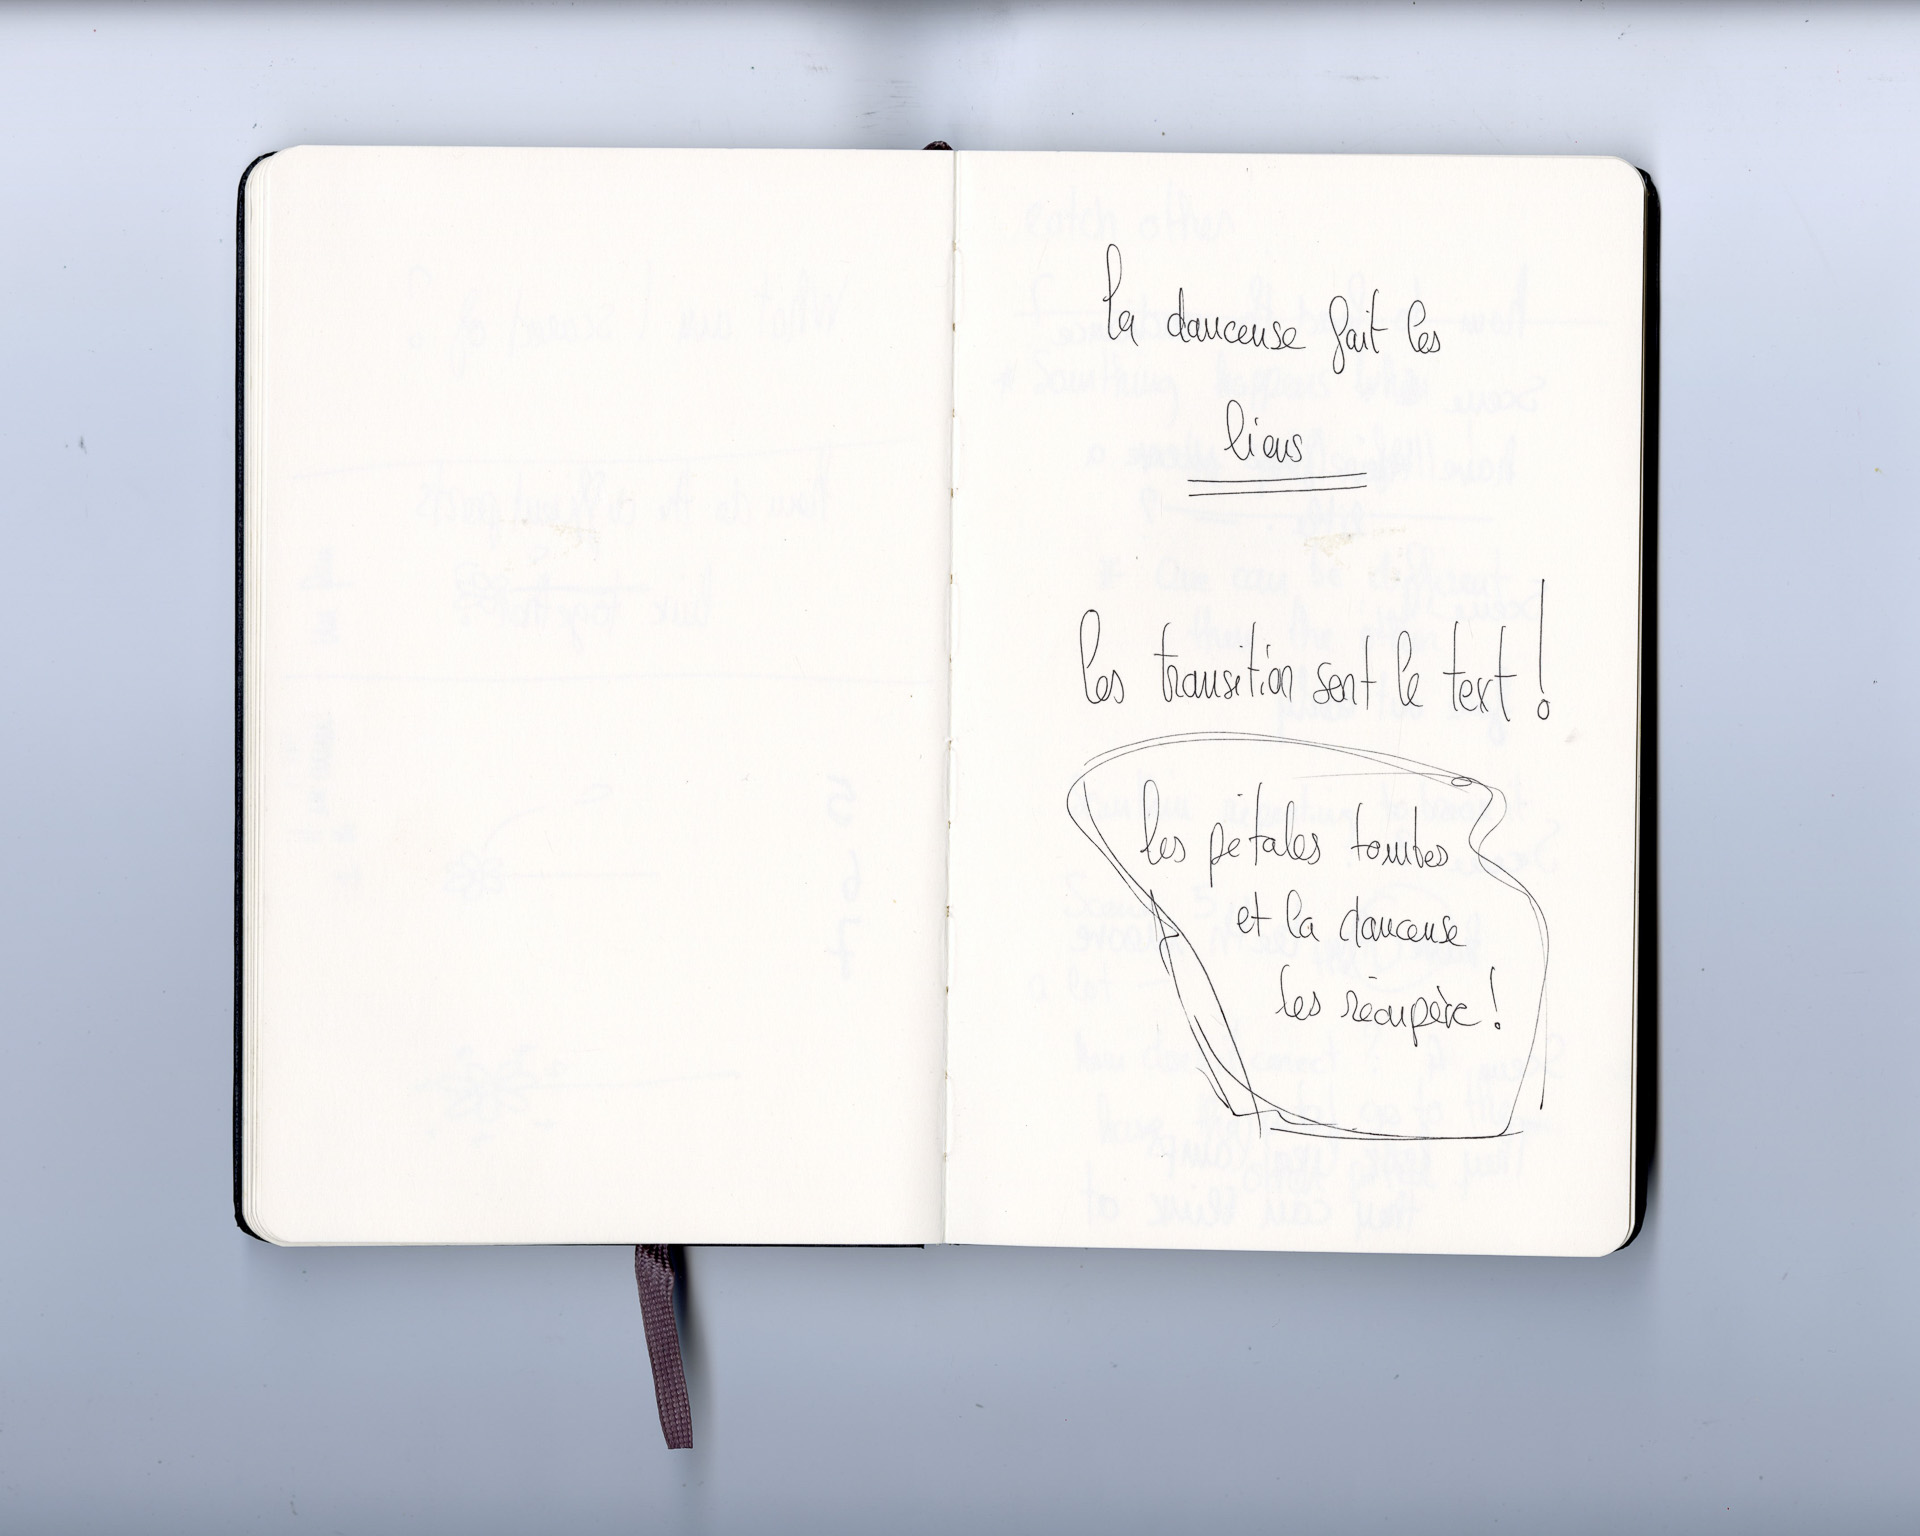 la danceuse fait les
liens
les transition sont le text !
les pétales tombes
et la danceuse
les récupère !